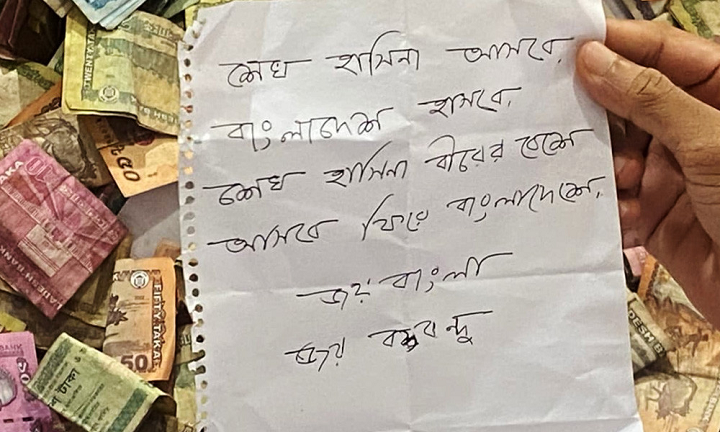 শেখ হাসিনা আসবে,
বাংলাদেশ হাসবে,
শেখ হাসিনা বীরের বেশে
আসবে ফিরে বাংলাদেশে,
জয় বাংলা
জয় বঙ্গবন্ধু
TWENTY TAKA
৫০
TAKA
FIFTY TAKA
50
টাকা